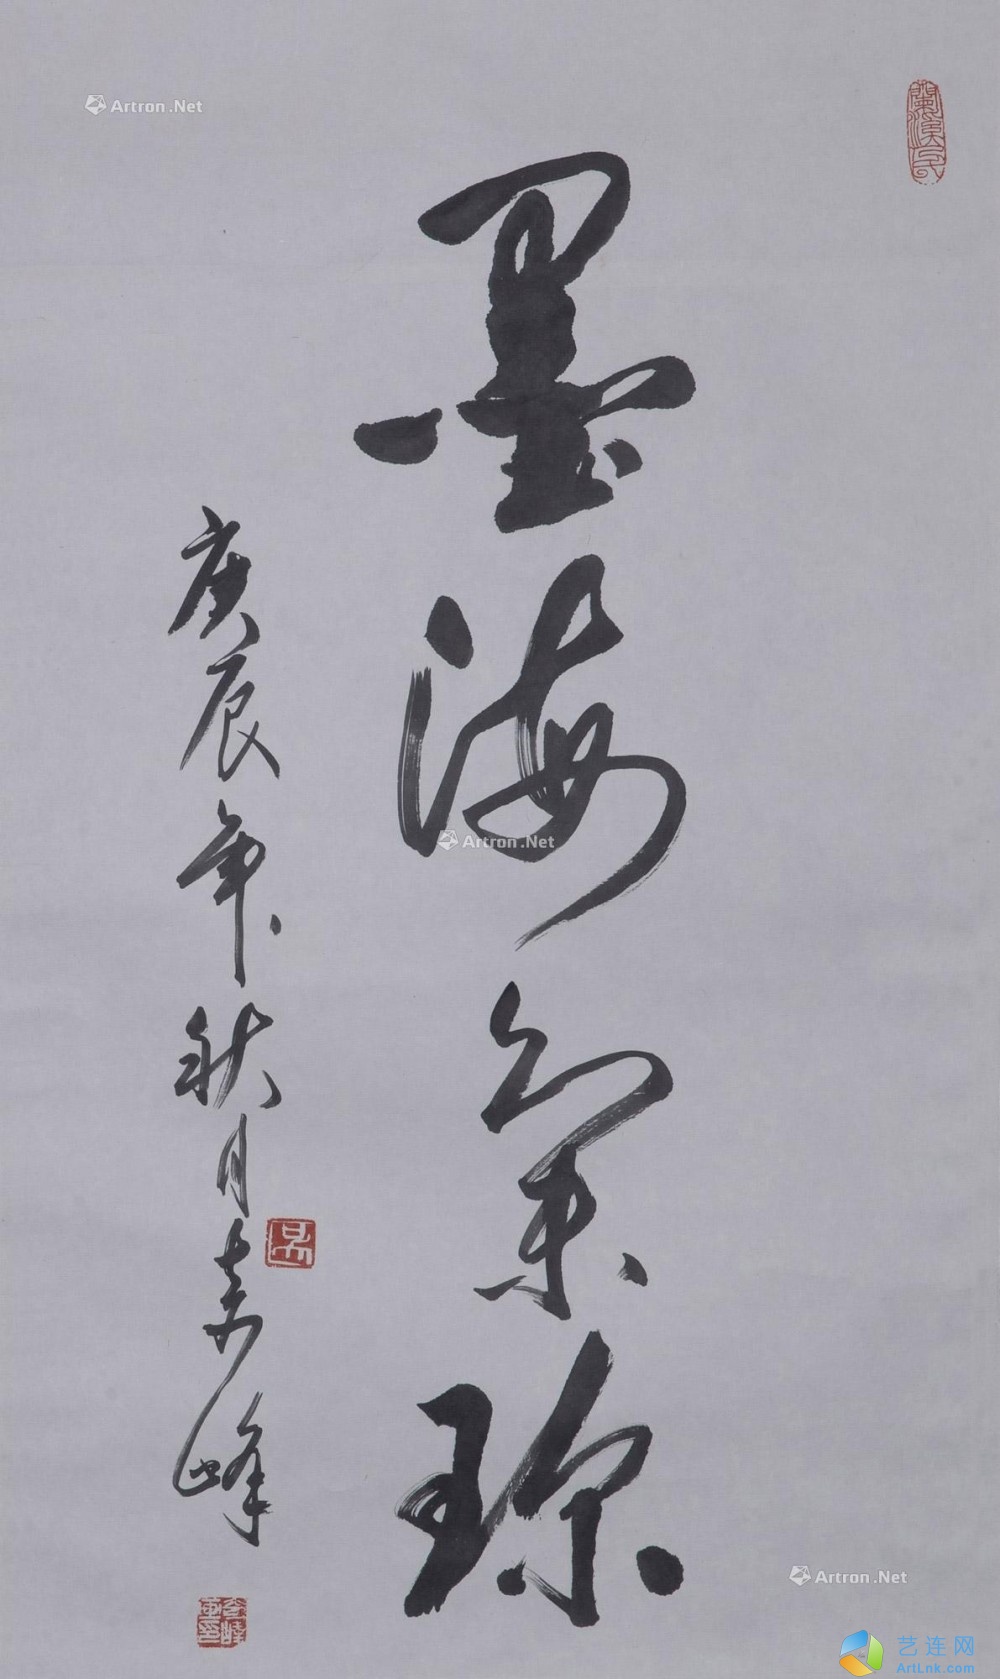 Artron.Net
墨海集珍
庚辰年秋月
峰
Artron.Net
Artron.Net
艺连网
ArtLnk.com